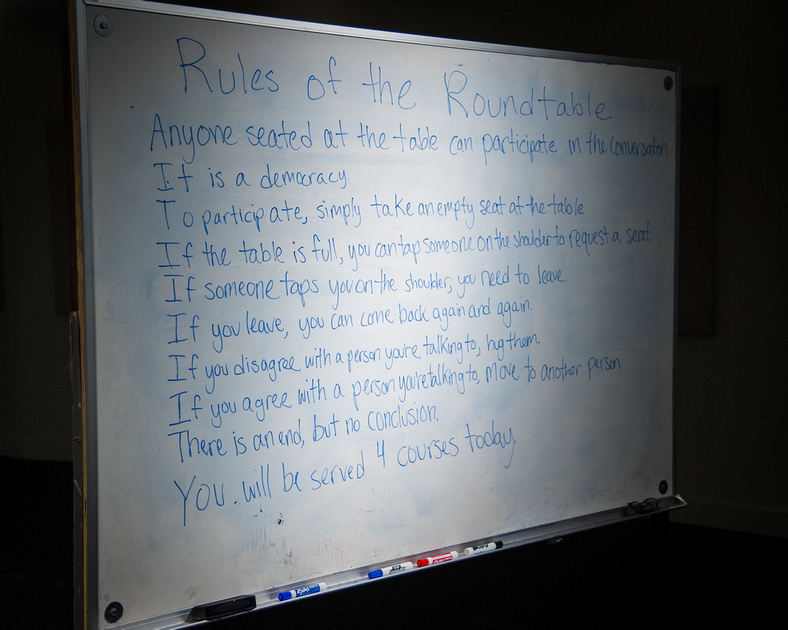 Rules of the Roundtable
Anyone seated at the table can participate in the conversation
It is a democracy.
To participate, simply take an empty seat at the table
If the table is full, you can tap someone on the shoulder to request a seat
If someone taps you on the shoulder, you need to leave
If you leave, you can come back again and again.
If you disagree with a person you're talking to, hug them.
If you agree with a person you're talking to, move to another person.
There is an end, but no conclusion.
You will be served 4 courses today.